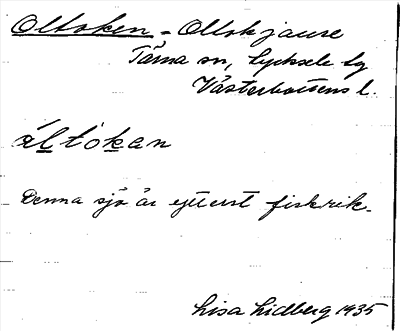 Oltoken - Oltokjaure
Tärna sn, Lycksele lg
Västerbottens l.
ål̲tok̲an
Denna sjö är ytterst fiskrik.
Lisa Lidberg 1935